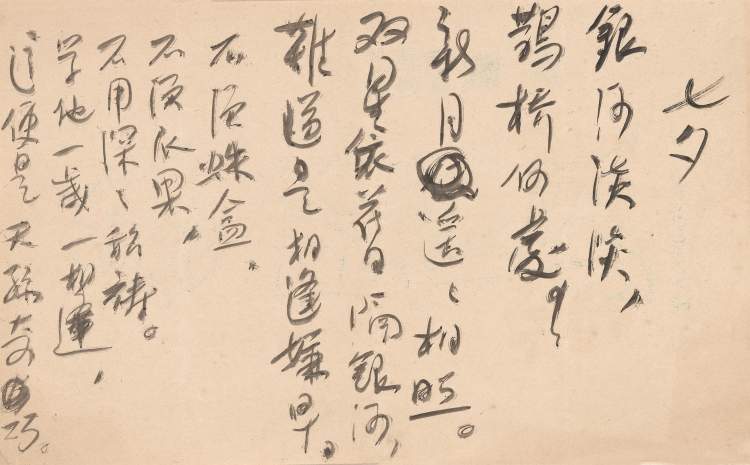 七夕
銀河淡淡，
鵲橋何處，
新月遥遥相照。
双星依舊隔銀河，
難道是相逢嫌早。
不須蛛盒，
不須瓜果，
不用深深私禱。
学他一歲一相逢，
這便是天孫奇巧。